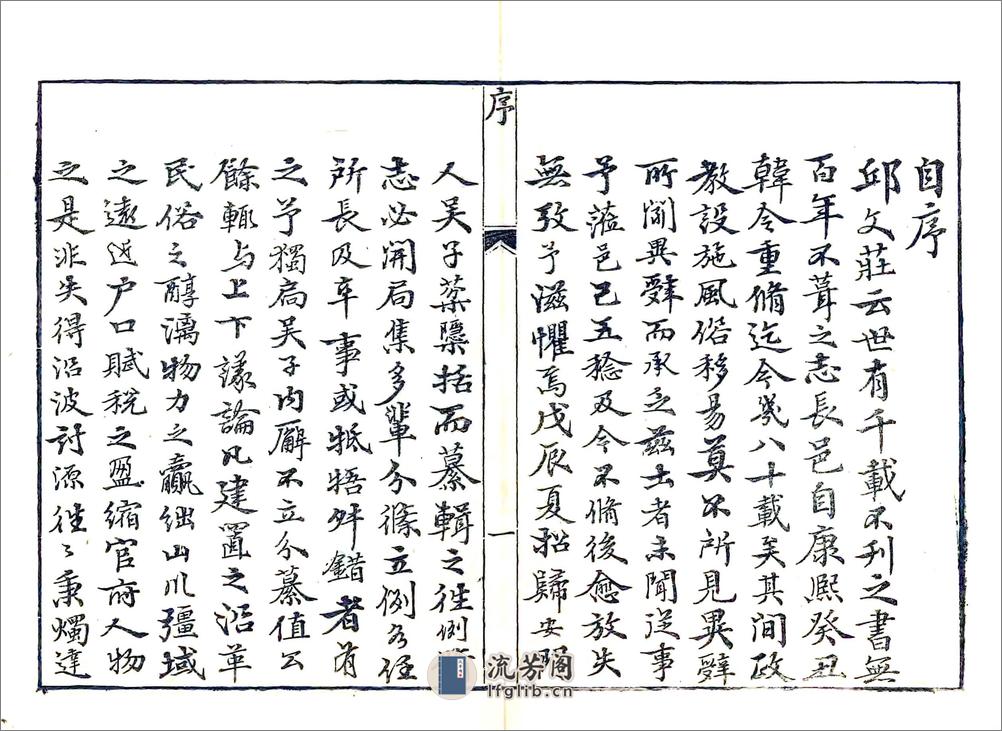 自序
邱文莊云世有千載不刊之書無
百年不葺之志長邑自康熙癸丑
韓令重脩迄今幾八十載矣其間政
教設施風俗移易莫不所見異辭
所聞異辭而承乏茲土者未聞從事
予蒞邑已五稔及今不脩後愈放失
無攷予滋懼焉戊辰夏招歸安
序
一
人吳子棻檃括而纂輯之往例
志必開局集多輩分條立例各任
所長及卒事或牴牾舛錯者有
之予獨扃吳子內廨不立分纂值公
餘輒与上下議論凡建置之沿革
民俗之醇漓物力之贏絀山川疆域
之遠近戶口賦稅之盈縮官府人物
之是非失得沿波討源往〻秉燭達
流芳阁
lfglib.cn